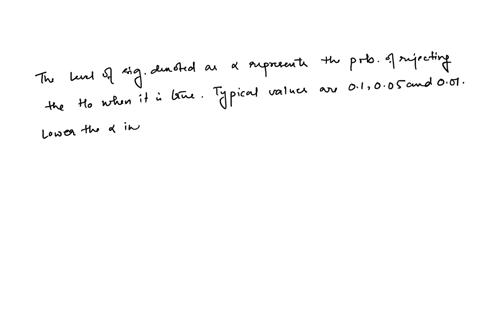 The level of sig. denoted as α represents the prb. of rejecting
the Ho when it is true. Typical values are 0.1, 0.05 and 0.01.
Lower the α in